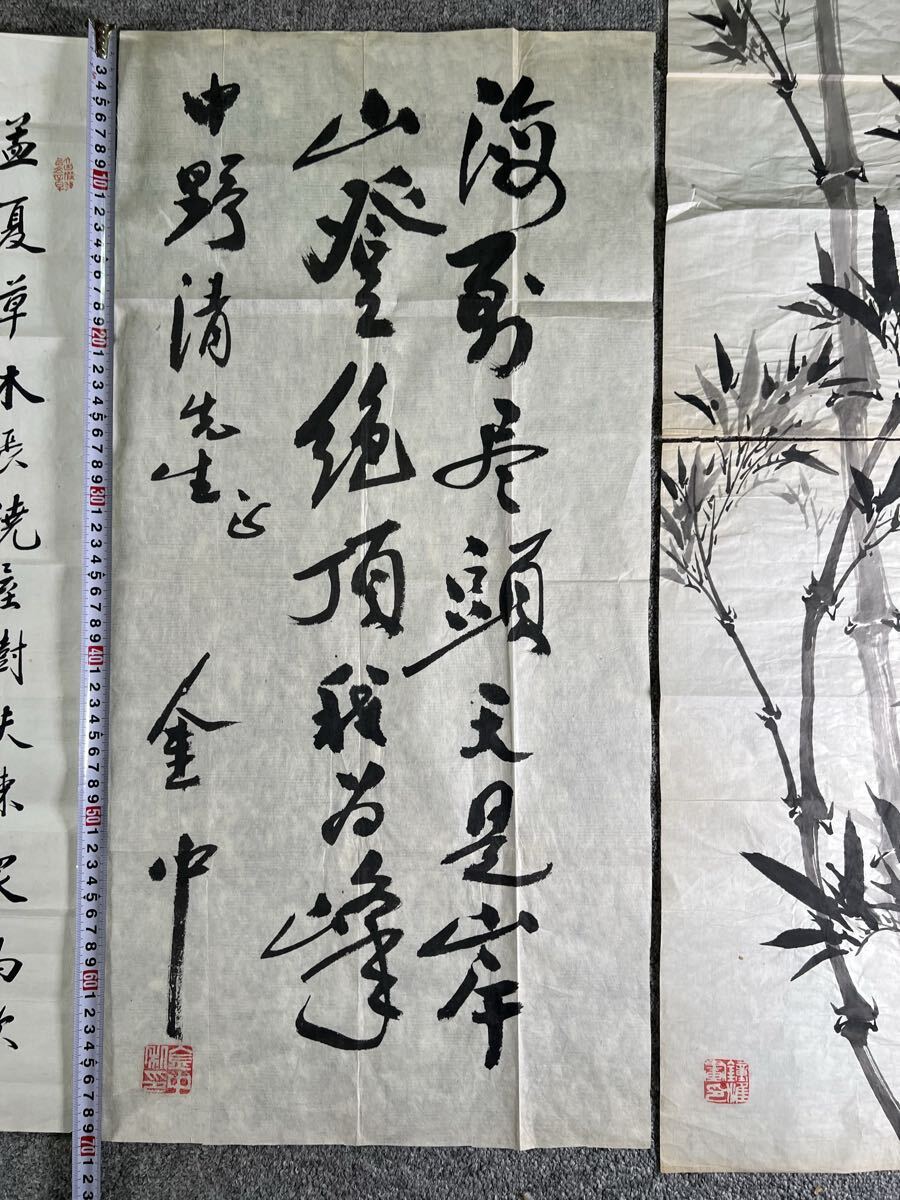 海到尽頭天是岸
山登絶頂我為峰
中野清先生正
金中
孟夏草木長繞屋樹扶疎眾鳥欣
3 4 5 6 7 8 9 10 1 2 3 4 5 6 7 8 9 20 1 2 3 4 5 6 7 8 9 30 1 2 3 4 5 6 7 8 9 40 1 2 3 4 5 6 7 8 9 50 1 2 3 4 5 6 7 8 9 60 1 2 3 4 5 6 7 8 9 70 1 2 3